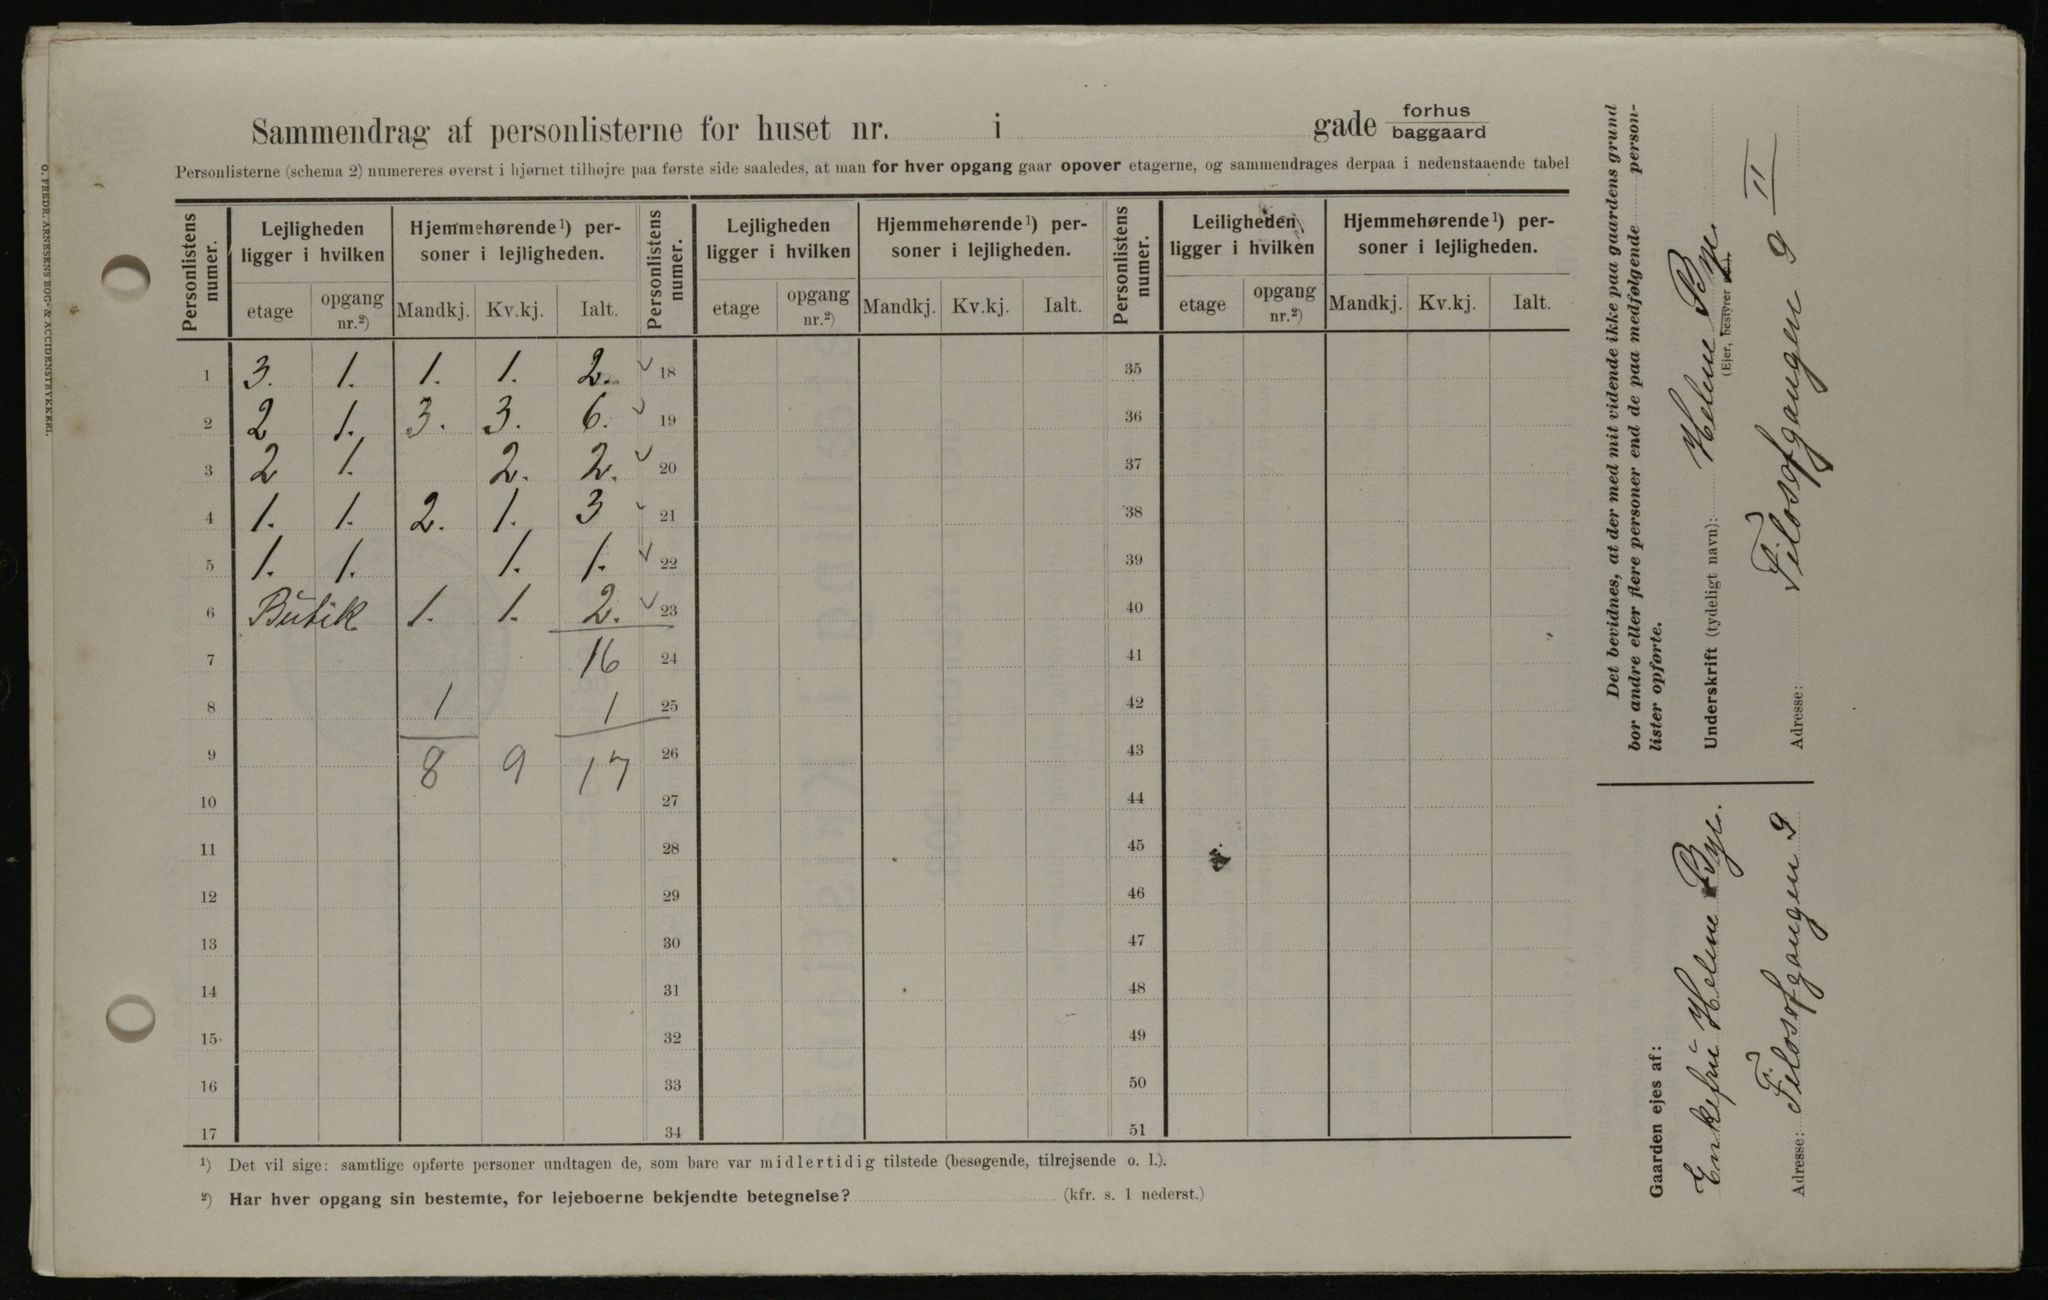 Sammendrag af personlisterne for huset nr. i gade forhus
baggaard
Personlisterne (schema 2) numereres øverst i hjørnet tilhøjre paa første side saaledes, at man for hver opgang gaar opover etagerne, og sammendrages derpaa i nedenstaaende tabel
Personlistens numer. Lejligheden ligger i hvilken Hjemmehørende¹) personer i lejligheden. Personlistens numer. Lejligheden ligger i hvilken Hjemmehørende¹) personer i lejligheden. Personlistens numer. Leiligheden ligger i hvilken Hjemmehørende¹) personer i lejligheden.
etage opgang nr.²) Mandkj. Kv.kj. Ialt. etage opgang nr.²) Mandkj. Kv.kj. Ialt. etage opgang nr.²) Mandkj. Kv.kj. Ialt.
1 3. 1. 1. 1. 2. 18 35
2 2 1. 3. 3. 6. 19 36
3 2 1. 2. 2. 20 37
4 1. 1. 2. 1. 3 21 38
5 1. 1. 1. 1. 22 39
6 Butik 1. 1. 2. 23 40
7 16 24 41
8 1 1 25 42
9 8 9 17 26 43
10 27 44
11 28 45
12 29 46
13 30 47
14 31 48
15 32 49
16 33 50
17 34 51
¹) Det vil sige: samtlige opførte personer undtagen de, som bare var midlertidig tilstede (besøgende, tilrejsende o. l.).
²) Har hver opgang sin bestemte, for lejeboerne bekjendte betegnelse? (kfr. s. 1 nederst.)
Det bevidnes, at der med mit vidende ikke paa gaardens grund
bor andre eller flere personer end de paa medfølgende person-
lister opførte.
Underskrift (tydeligt navn): Helene Bye.
(Ejer, bestyrer
Adresse: Filosofgangen 9 II
Gaarden ejes af:
Enkefru Helene Bye.
Adresse: Filosofgangen 9
O. FREDR. ARNESENS BOG- & ACCIDENSTRYKKERI.